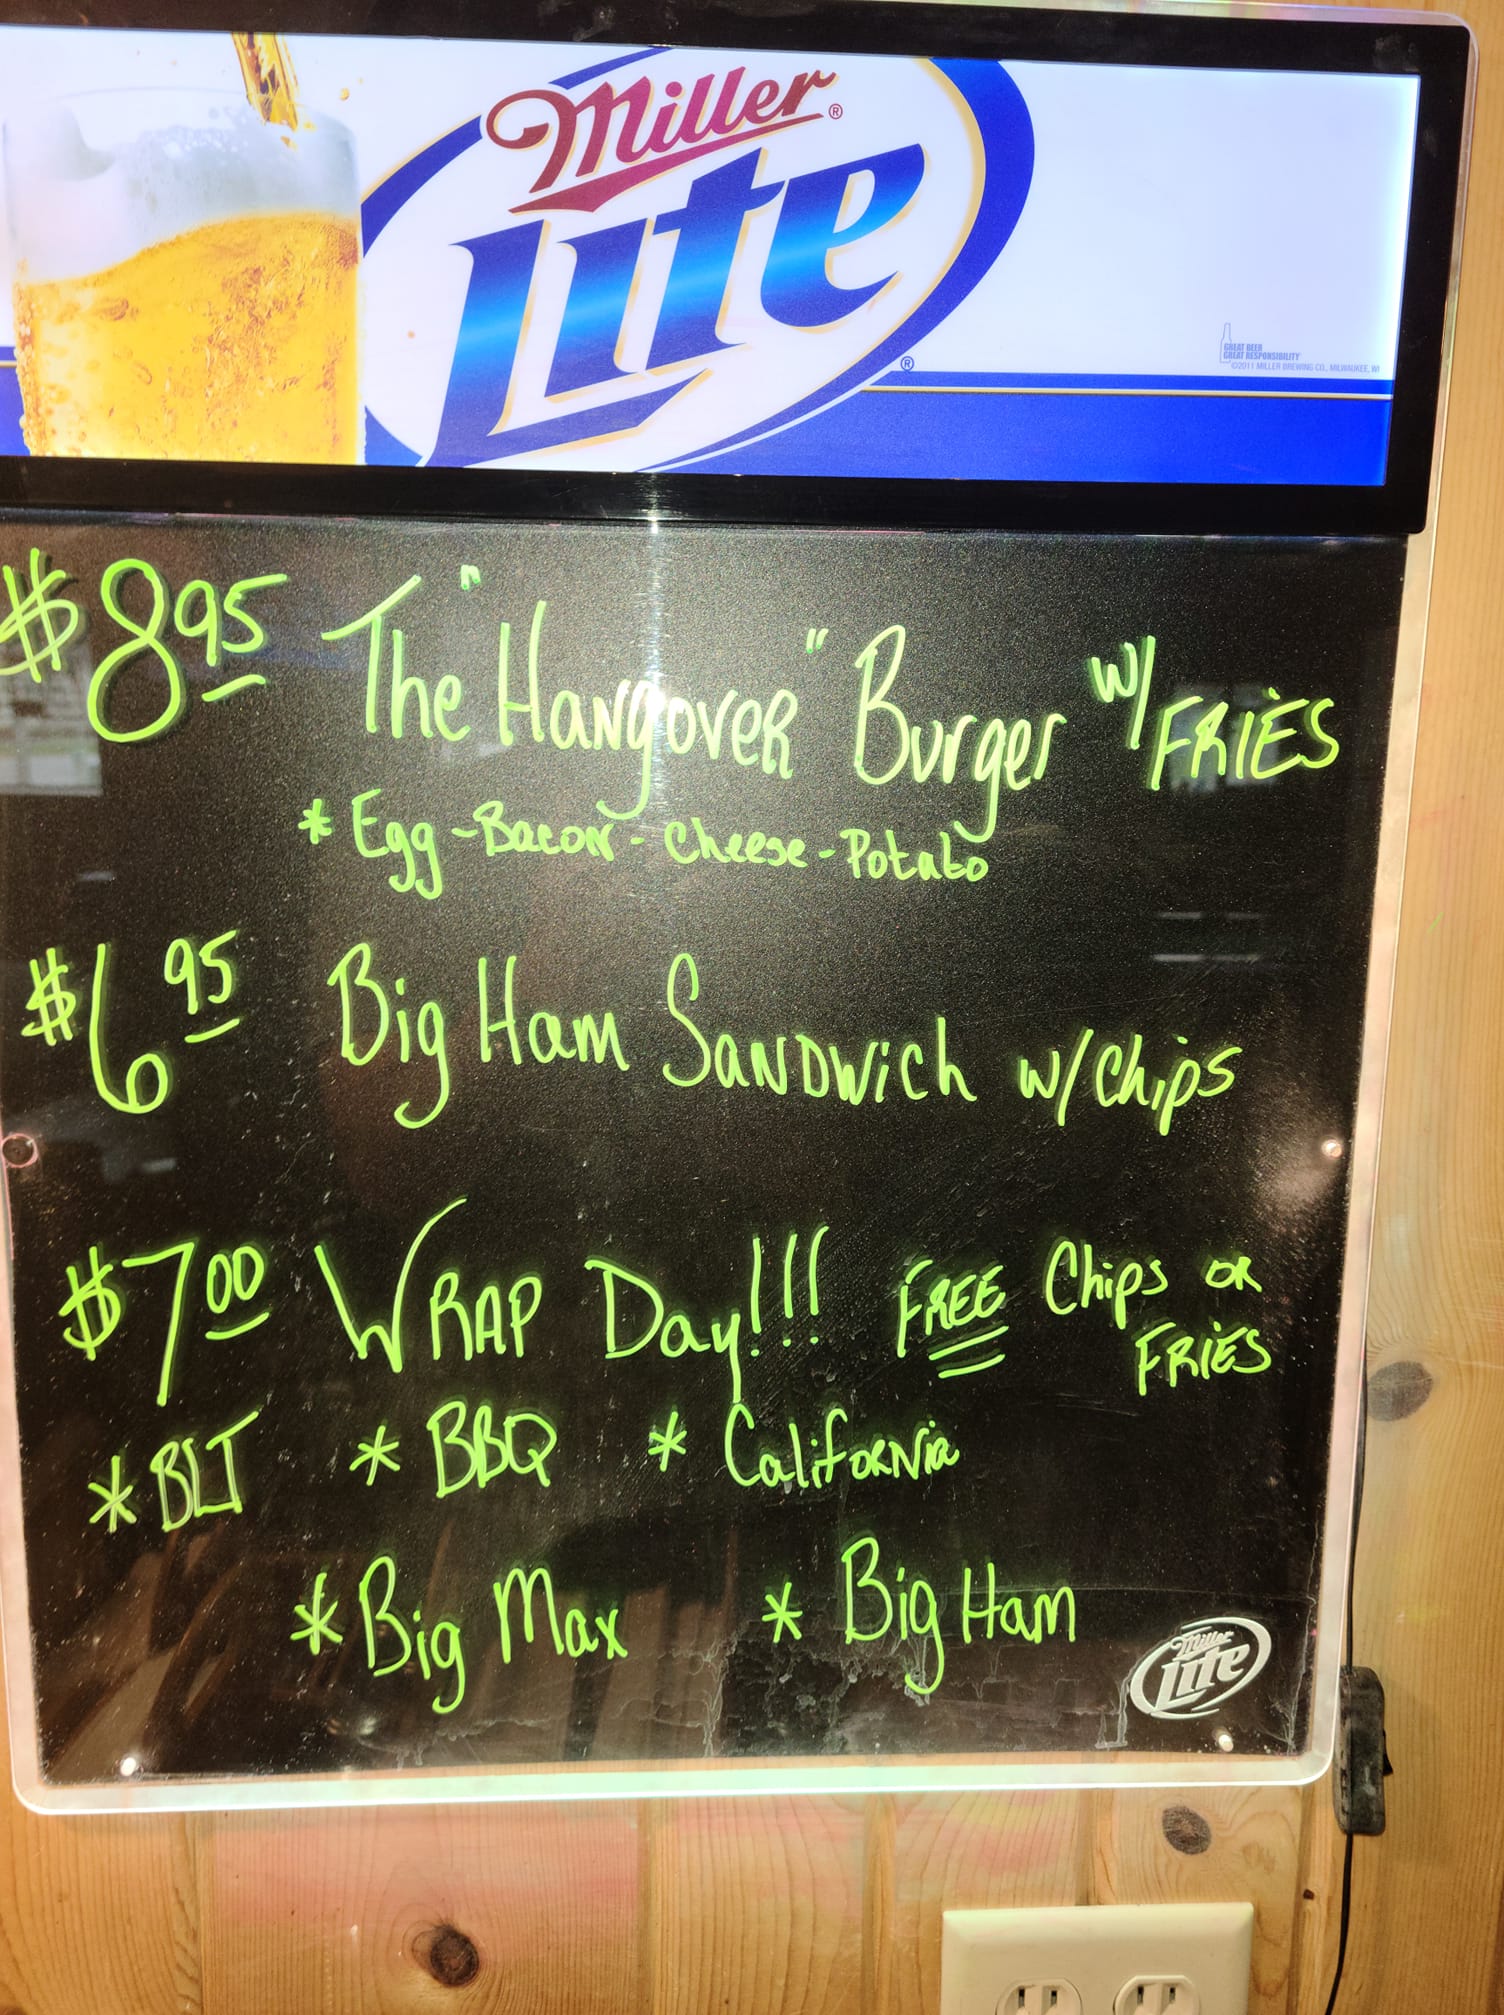 Miller®
Lite®
GREAT BEER
GREAT RESPONSIBILITY
©2011 MILLER BREWING CO., MILWAUKEE, WI
$8.95 The "Hangover" Burger w/ FRIES
* Egg - Bacon - Cheese - Potato
$6.95 Big Ham Sandwich w/ Chips
$7.00 WRAP Day!!! FREE Chips OR
FRIES
* BLT * BBQ * California
* Big Max * Big Ham
Miller
Lite